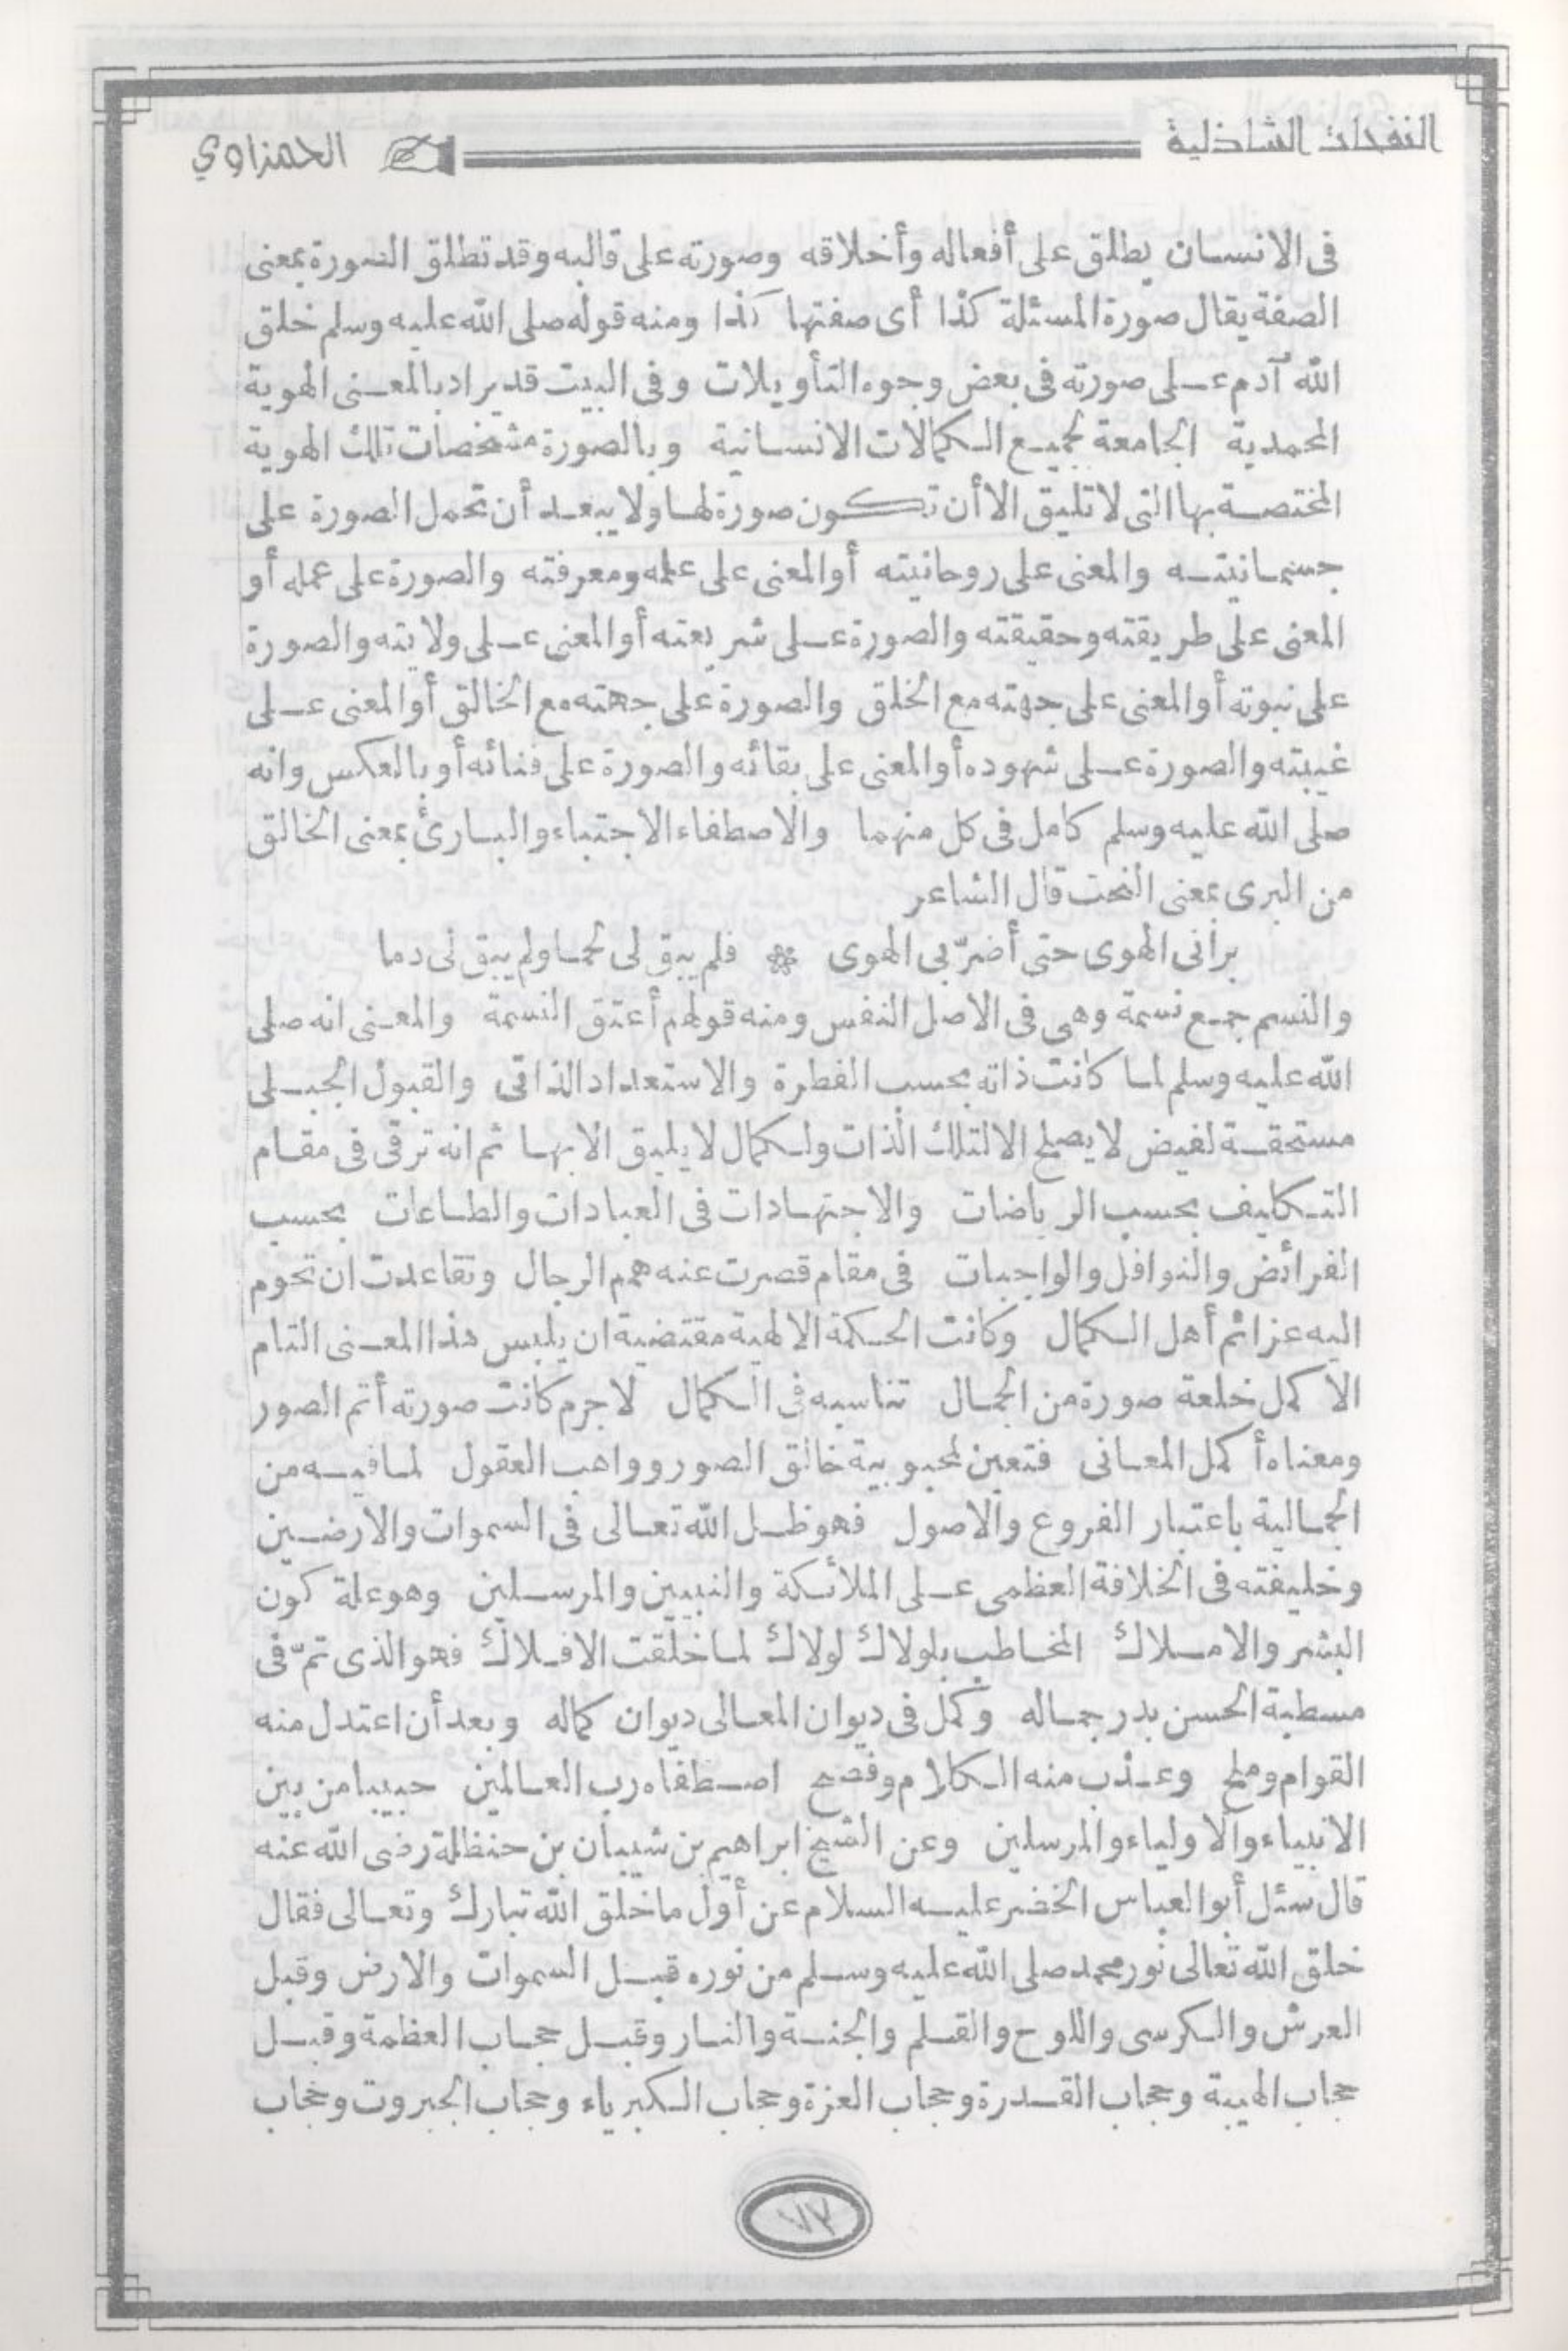 النفحات الشاذلية
الحمزاوي
فى الانسان يطلق على أفعاله وأخلاقه وصورته على قالبه وقد تطلق الصورة بمعنى
الصفة يقال صورة المسئلة كذا أى صفتها كذا ومنه قوله صلى الله عليه وسلم خلق
الله آدم على صورته فى بعض وجوه التأويلات وفى البيت قد يراد بالمعنى الهوية
المحمدية الجامعة لجميع الكمالات الانسانية وبالصورة مشخصات تلك الهوية
المختصة بها التى لا تليق الا أن تكون صورة لها ولا يبعد أن تحمل الصورة على
جسمانيته والمعنى على روحانيته أو المعنى على علمه ومعرفته والصورة على عمله أو
المعنى على طريقته وحقيقته والصورة على شريعته أو المعنى على ولايته والصورة
على نبوته أو المعنى على جهته مع الخلق والصورة على جهته مع الخالق أو المعنى على
غيبته والصورة على شهوده أو المعنى على بقائه والصورة على فنائه أو بالعكس وانه
صلى الله عليه وسلم كامل فى كل منهما والاصطفاء الاجتباء والبارئ بمعنى الخالق
من البرى بمعنى النحت قال الشاعر
برانى الهوى حتى أضرّ بى الهوى ❁ فلم يبق لى لحما ولم يبق لى دما
والنسم جمع نسمة وهى فى الاصل النفس ومنه قولهم أعتق النسمة والمعنى انه صلى
الله عليه وسلم لما كانت ذاته بحسب الفطرة والاستعداد الذاتى والقبول الجبلى
مستحقة لفيض لا يصلح الا لتلك الذات ولكمال لا يليق الا بها ثم انه ترقى فى مقام
التكليف بحسب الرياضات والاجتهادات فى العبادات والطاعات بحسب
الفرائض والنوافل والواجبات فى مقام قصرت عنه همم الرجال وتقاعدت ان تحوم
اليه عزائم أهل الكمال وكانت الحكمة الالهية مقتضية ان يلبس هذا المعنى التام
الاكمل خلعة صورة من الجمال تناسبه فى الكمال لا جرم كانت صورته أتم الصور
ومعناه أكمل المعانى فتعين لمحبوبية خالق الصور وواهب العقول لما فيه من
الجمالية باعتبار الفروع والاصول فهو ظل الله تعالى فى السموات والارضين
وخليفته فى الخلافة العظمى على الملائكة والنبيين والمرسلين وهو علة كون
البشر والاملاك المخاطب بلولاك لولاك لما خلقت الافلاك فهو الذى تمّ فى
مسطبة الحسن بدر جماله وكمل فى ديوان المعالى ديوان كماله وبعد أن اعتدل منه
القوام وملح وعذب منه الكلام وفصح اصطفاه رب العالمين حبيبا من بين
الانبياء والاولياء والمرسلين وعن الشيخ ابراهيم بن شيبان بن حنظلة رضى الله عنه
قال سئل أبو العباس الخضر عليه السلام عن أول ما خلق الله تبارك وتعالى فقال
خلق الله تعالى نور محمد صلى الله عليه وسلم من نوره قبل السموات والارض وقبل
العرش والكرسى واللوح والقلم والجنة والنار وقبل حجاب العظمة وقبل
حجاب الهيبة وحجاب القدرة وحجاب العزة وحجاب الكبرياء وحجاب الجبروت وحجاب
٧٣